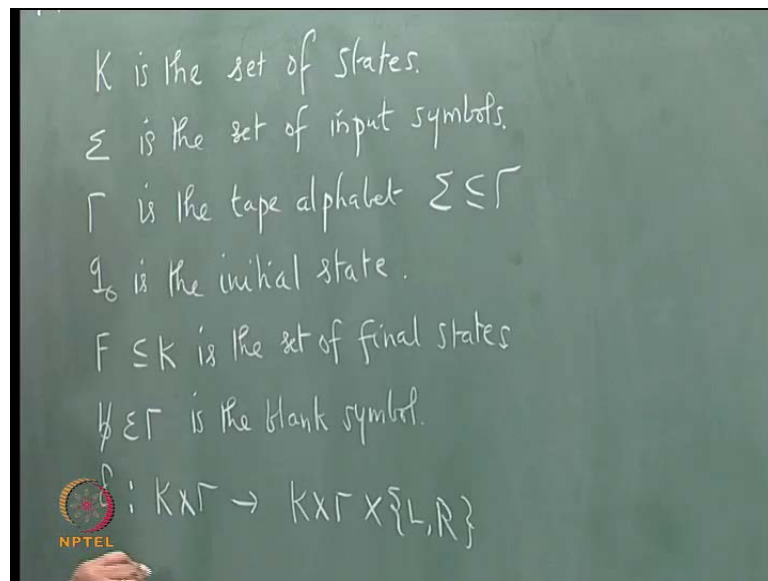 K is the set of states.
Σ is the set of input symbols.
Γ is the tape alphabet Σ ⊆ Γ
q₀ is the initial state.
F ⊆ K is the set of final states
b̸ ε Γ is the blank symbol.
: K x Γ → K x Γ x {L, R}
NPTEL